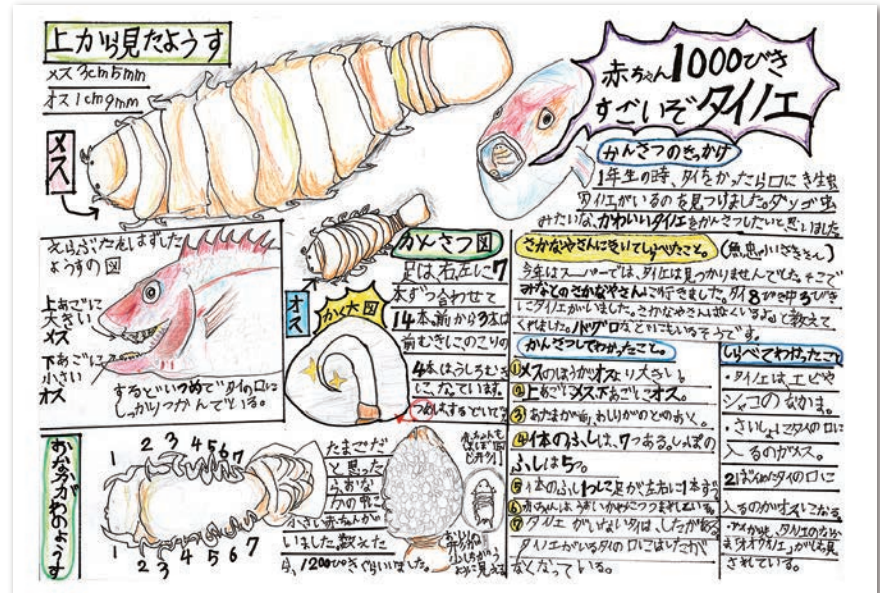 上から見たようす
メス3cm5mm
オス1cm9mm
メス
赤ちゃん1000びき
すごいぞタイノエ
かんさつのきっかけ
1年生の時、タイをかったら口にき生虫
タイノエがいるのを見つけました。ダンゴ虫
みたいな、かわいいタイノエをかんさつしたいと思いました
えらぶたをはずした
ようすの図
上あごに
大きい
メス
下あごに
小さい
オス
するどいつめでタイの口に
しっかりつかんでいる。
オス
かんさつ図
足は、右、左に7
本ずつ合わせて
14本。前から3本は
前むきにこのこりの
4本は、うしろむき
に、なっています。
つめは、するどいです
かく大図
さかなやさんにきいてしらべたこと。
今年はスーパーでは、タイノエは見つかりませんでした。そこで
みなとのさかなやさんに行きました。タイ8ぴき中3びき
にタイノエがいました。さかなやさんは
くれました。
かんさつしてわかったこと。
①メスのほうがオスより大きい。
②上あごにメス、下あごにオス。
③あたまが前、おしりがのどのおく。
④体のふしは、7つある。しっぽの
ふしは5つ。
⑤1本のふし1つに足が左右に1本ずつ
⑥赤ちゃんは、うすいかわにつつまれている。
⑦タイノエがいないタイは、したがある。
タイノエがいるタイの口にはしたが
なくなっている。
しらべてわかったこと
・タイノエは、エビや
シャコのなかま。
・さいしょにタイの口に
入るのがメス。
2ばんめにタイの口に
入るのがオスになる。
されている。
おなかがわのようす
1 2 3 4 5 6 7
1 2 3 4 5 6 7
たまごだ
と思った
らおな
かの中に
小さい赤ちゃんが
いました。数えた
ら、1200ぴきぐらいいました。